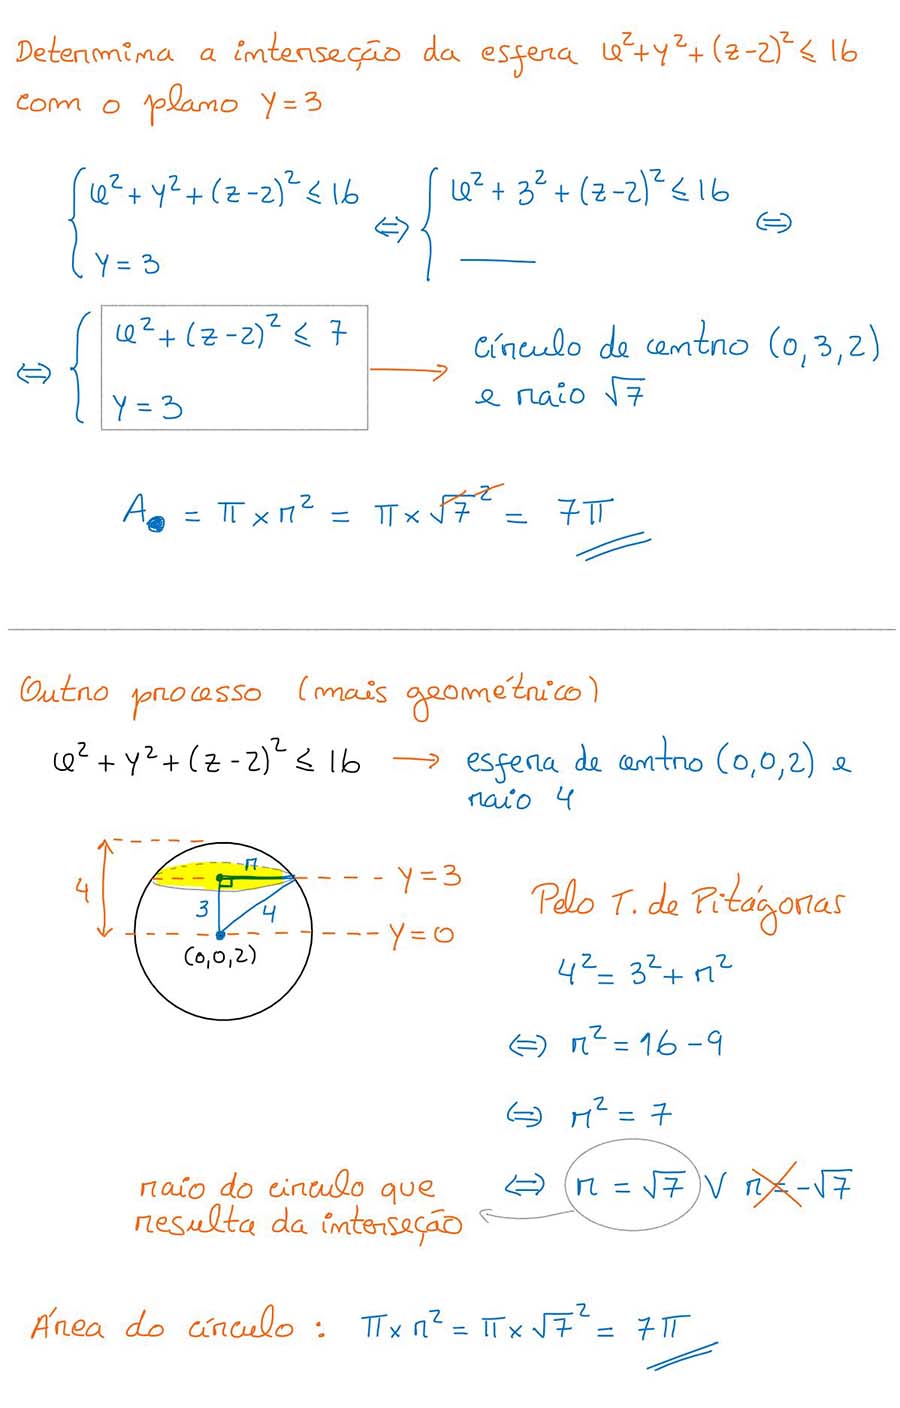 Determina a interseção da esfera x²+y²+(z-2)² ≤ 16
com o plano y=3
{ x² + y² + (z-2)² ≤ 16 ⇔ { x² + 3² + (z-2)² ≤ 16 ⇔
y = 3 ____
⇔ { x² + (z-2)² ≤ 7 → círculo de centro (0,3,2)
y = 3 e raio √7
A● = π × r² = π × √7² = 7π
Outro processo (mais geométrico)
x² + y² + (z-2)² ≤ 16 → esfera de centro (0,0,2) e
raio 4
r
4 y=3
3 4
y=0
(0,0,2)
Pelo T. de Pitágoras
4² = 3² + r²
⇔ r² = 16 - 9
⇔ r² = 7
⇔ r = √7 ∨ r = -√7
raio do círculo que
resulta da interseção
Área do círculo : π × r² = π × √7² = 7π